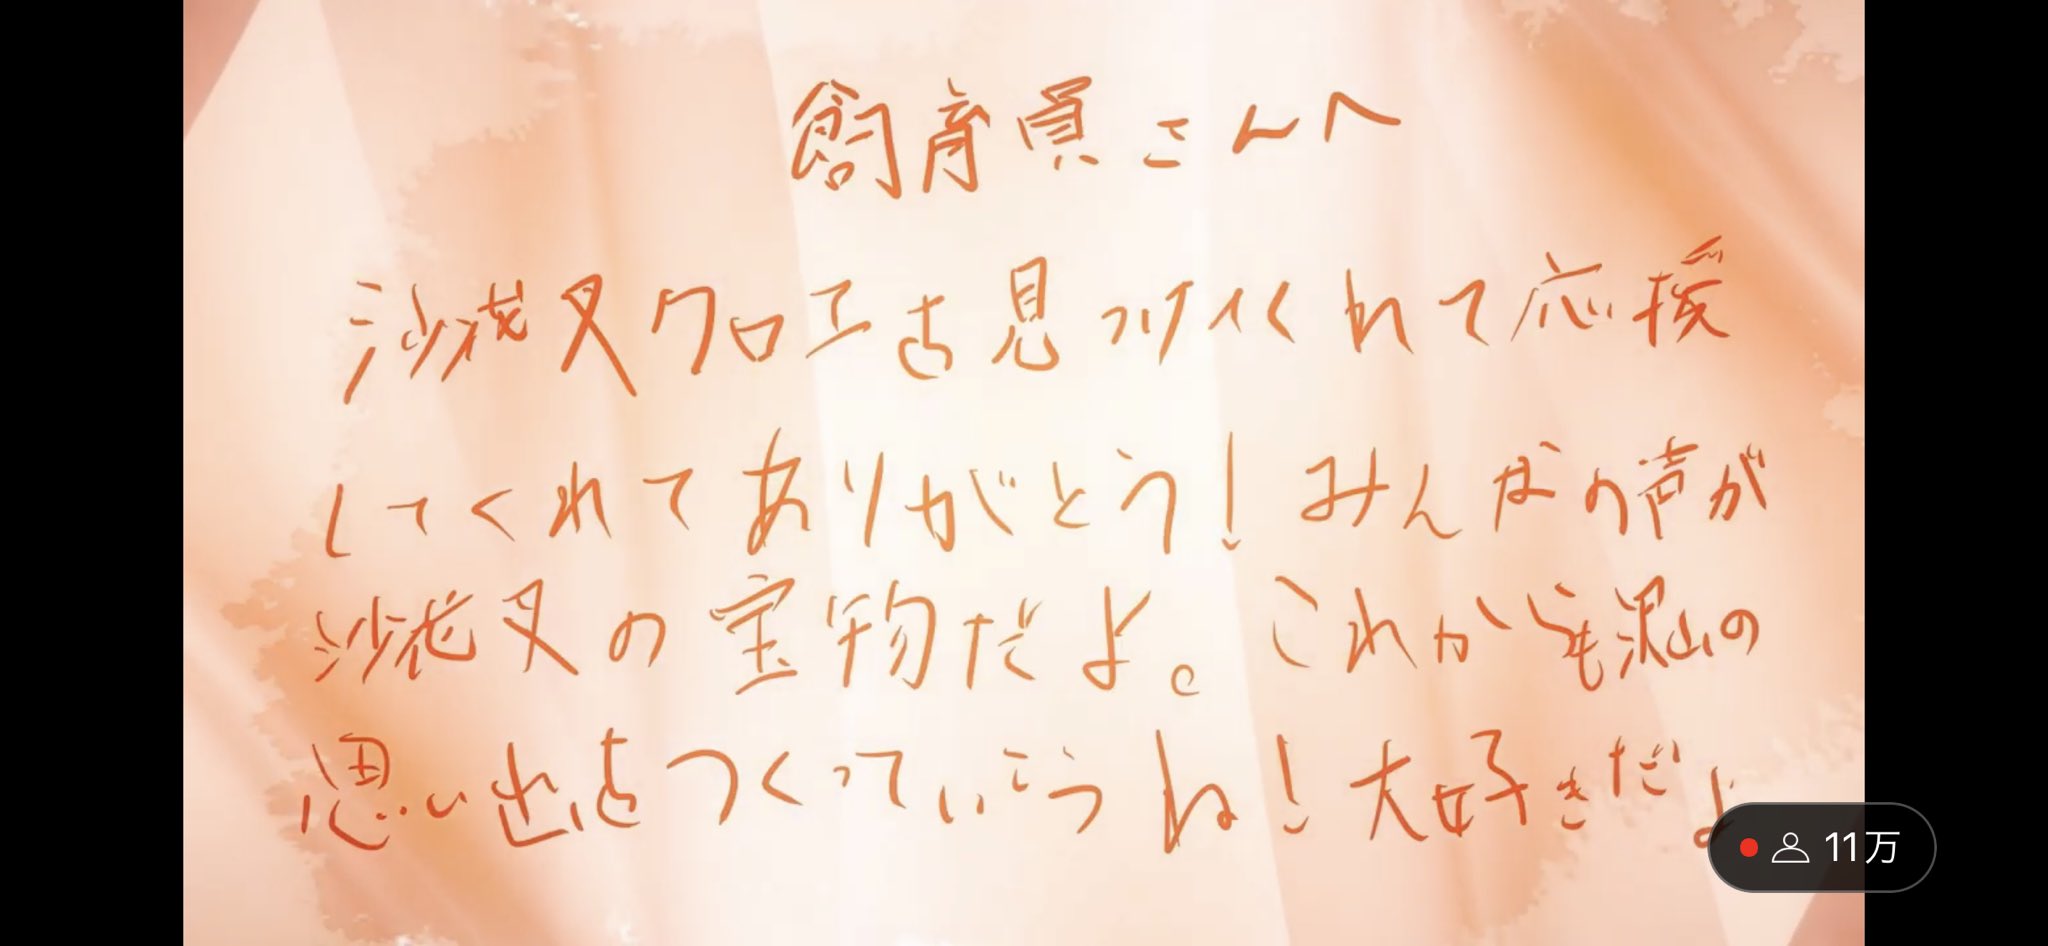 飼育員さんへ
沙花叉クロヱを見つけてくれて応援
してくれてありがとう！みんなの声が
沙花叉の宝物だよ。これからも沢山の
思い出をつくっていこうね！大好きだよ
11万